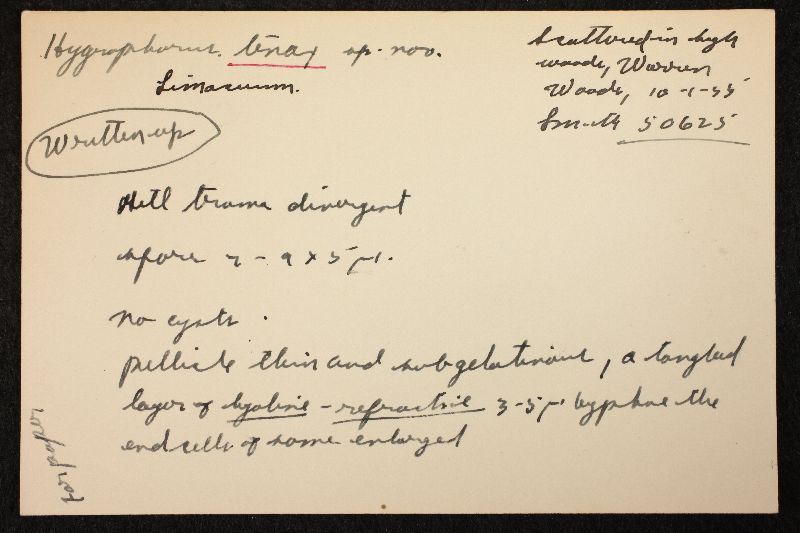 Hygrophorus. tenax sp. nov.
Limacium.
Scattered in high
woods, Warren
Woods, 10-1-55
Smith 50625
Written up
Gill trama divergent
spore 7-9 x 5 μ.
no cysts.
pellicle thin and subgelatinous, a tangled
layer of hyaline-refractive 3-5 μ hyphae the
end cells of some enlarged
for paper